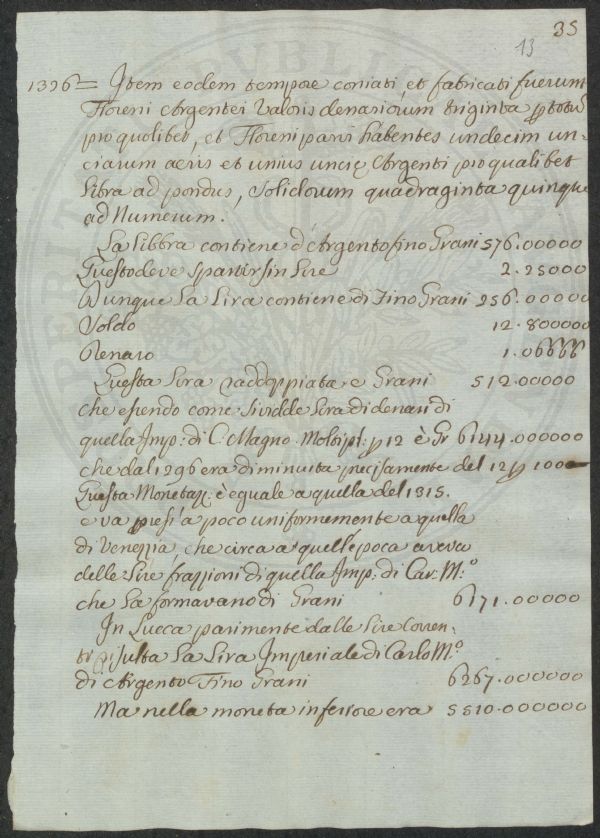 35
13
1396 = Item eodem tempore coniati, et fabricati fuerunt
Floreni Argentei Valoris denariorum triginta
pro quolibet, et Floreni parvi habentes undecim un-
ciarum aeris et unius uncię Argenti pro qualibet
Libra ad pondus, Solidorum quadraginta quinque
ad Numerum.
La Libbra contiene d'Argento fino Grani 576.00000
Questo deve spartirsi in Lire 2.25000
Dunque La Lira contiene di Fino Grani 256.00000
Soldo 12.800000
Denaro 1.06666
Questa Lira raddoppiata è Grani 512.00000
che essendo come Lira di denari di
quella Imp: di C: Magno. p 12 è Gr 6144.000000
che dal 1296 era diminuita precisamente del 12 p 1000
Questa è eguale a quella del 1315.
e va press'a poco uniformemente a quella
di Venezia, che circa a quell'epoca aveva
delle Lire frazzioni di quella Imp: di Car: M.o
che La formavano di Grani 6171.00000
In Lucca parimente dalle Lire Corren-
ti risulta La Lira Imperiale di Carlo M.o
di Argento Fino Grani 6267.000000
Ma nella moneta inferiore era 5510.000000